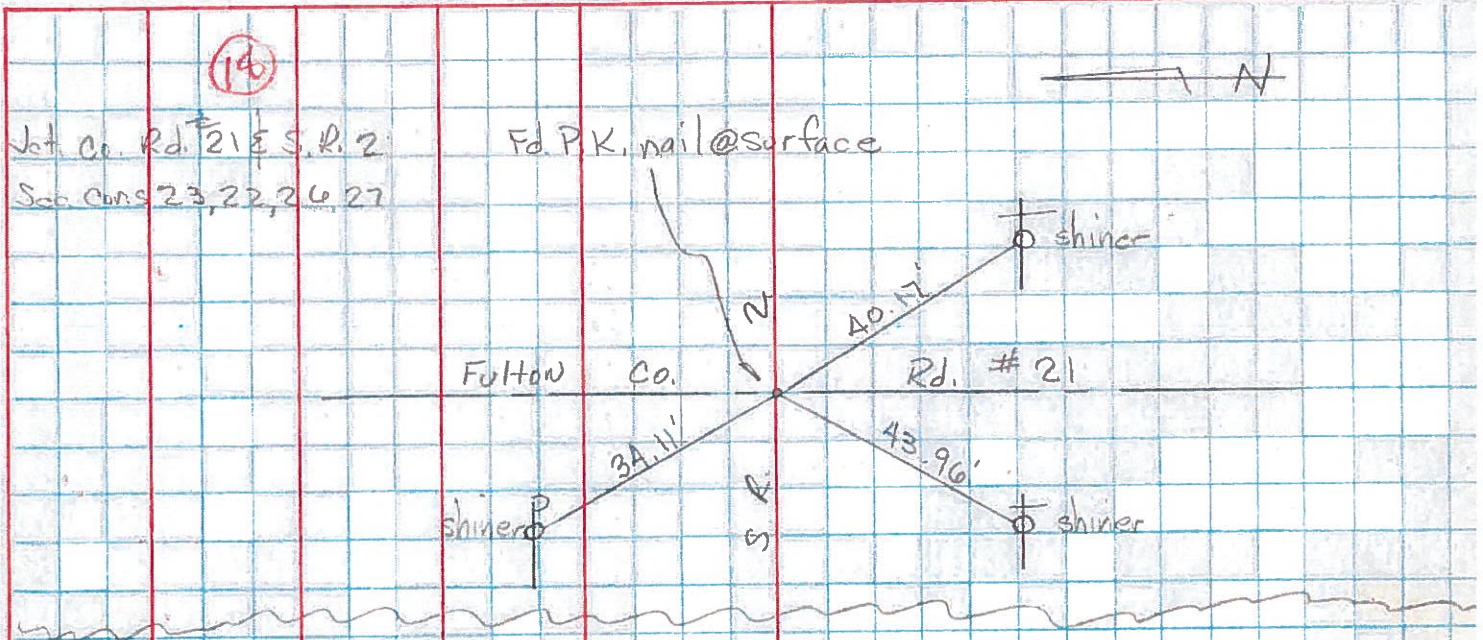 Jct. Co. Rd. #21 & S.R. 2
Sec. Cors 23, 22, 26, 27
Fd. P.K. nail @ surface
N
shiner
40.17'
Fulton Co. Rd. # 21
S.R. 2
34.11'
43.96'
P
shiner
shiner